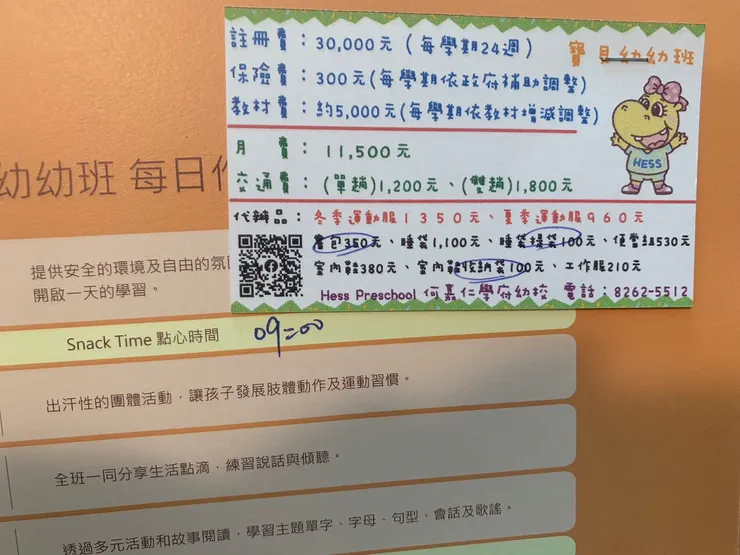 註冊費：30,000元（每學期24週）
寶貝幼幼班
保險費：300元(每學期依政府補助調整)
教材費：約5,000元(每學期依教材增減調整)
HESS
月費：11,500元
交通費：(單趟)1,200元、(雙趟)1,800元
代辦品：冬季運動服1350元、夏季運動服960元
書包350元、睡袋1,100元、睡袋提袋100元、便當組530元
室內鞋380元、室內鞋收納袋100元、工作服210元
Hess Preschool 何嘉仁學府幼校 電話：8262-5512
幼幼班 每日作
提供安全的環境及自由的氛
開啟一天的學習。
Snack Time 點心時間 09=00
出汗性的團體活動，讓孩子發展肢體動作及運動習慣。
全班一同分享生活點滴，練習說話與傾聽。
透過多元活動和故事閱讀，學習主題單字、字母、句型、會話及歌謠。